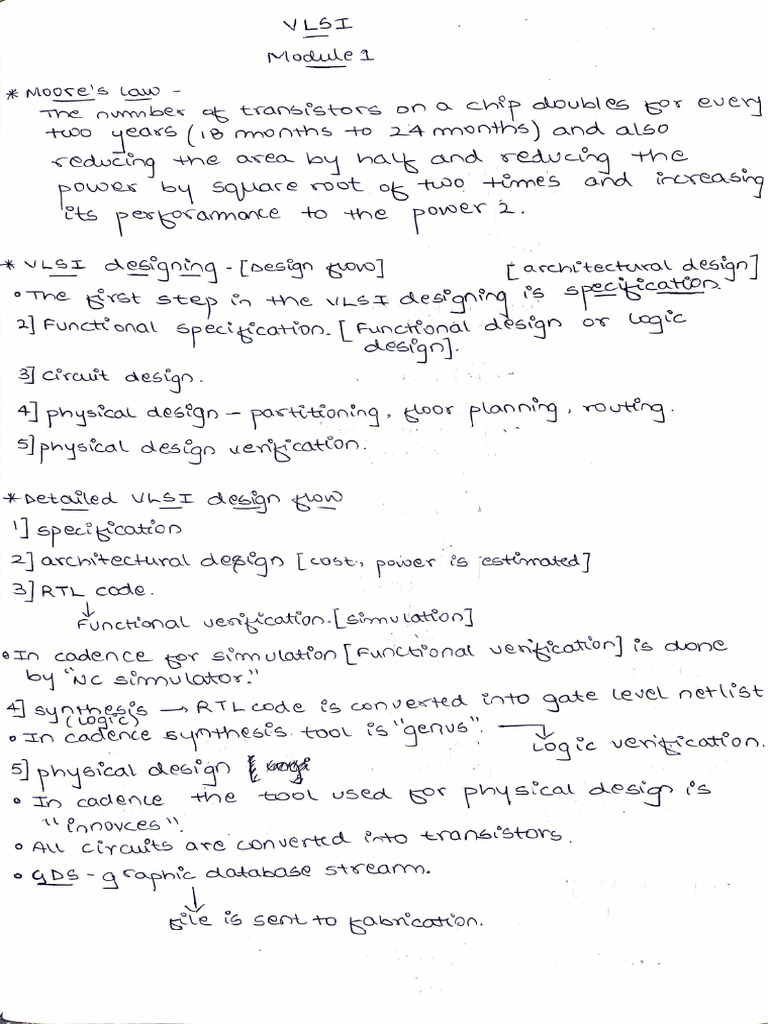 VLSI
Module 1
* Moore's Law -
The number of transistors on a chip doubles for every
two years (18 months to 24 months) and also
reducing the area by half and reducing the
power by square root of two times and increasing
its perforamance to the power 2.
* VLSI designing - [Design flow] [architectural design]
• The first step in the VLSI designing is specification.
2] Functional specification. [Functional design or logic
design].
3] circuit design.
4] physical design - partitioning, floor planning, routing.
5] physical design verification.
* Detailed VLSI design flow
1] specification
2] architectural design [cost, power is estimated]
3] RTL code.
↓
Functional verification. [simulation]
• In cadence for simulation [Functional verification] is done
by "NC simulator."
4] synthesis → RTL code is converted into gate level netlist
(logic)
• In cadence synthesis tool is "genus".
↓
Logic verification.
5] physical design
• In cadence the tool used for physical design is
"innovces".
• All circuits are converted into transistors.
• GDS - graphic database stream.
↓
file is sent to fabrication.